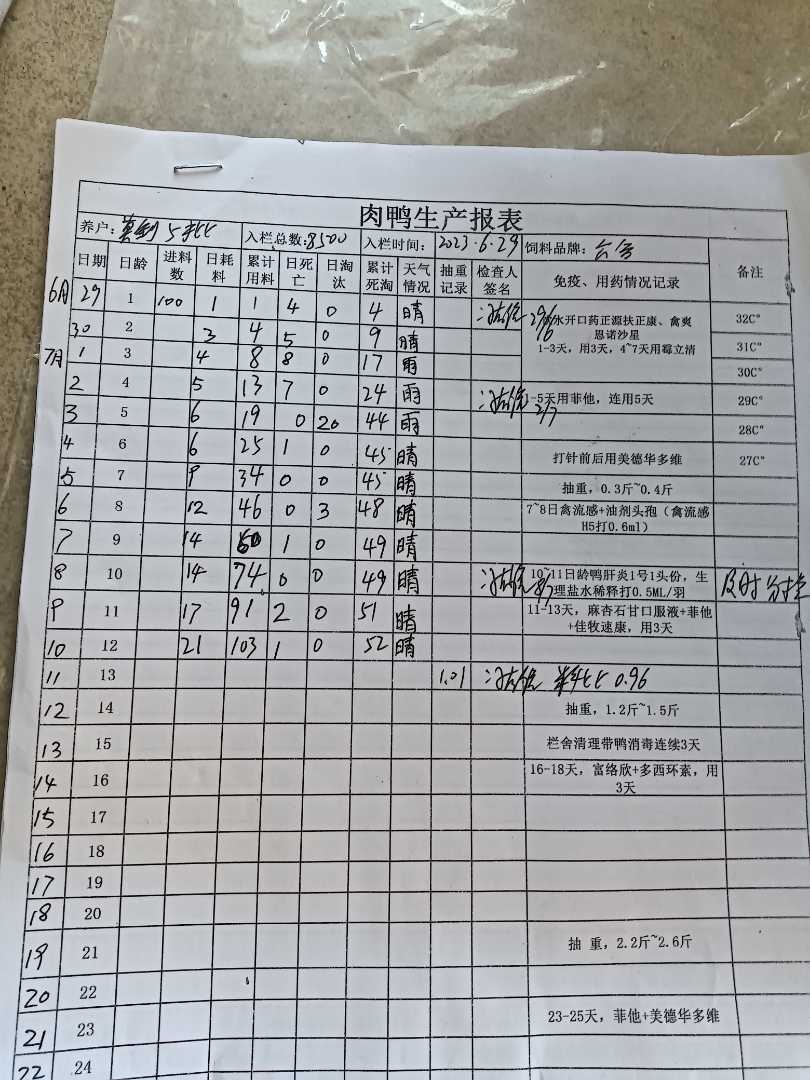 肉鸭生产报表
养户: 5批 入栏总数:8500 入栏时间: 2023.6.29 饲料品牌:
日期 日龄 进料数 日耗料 累计用料 日死亡 日淘汰 累计死淘 天气情况 抽重记录 检查人签名 免疫、用药情况记录 备注
6月 29 1 100 1 1 4 0 4 晴 29/6 水开口药正源扶正康、禽爽 32C°
恩诺沙星
30 2 3 4 5 0 9 晴 1-3天，用3天，4~7天用霉立清 31C°
7月 1 3 4 8 8 0 17 雨 30C°
2 4 5 13 7 0 24 雨 2/7 -5天用菲他，连用5天 29C°
3 5 6 19 0 20 44 雨 28C°
4 6 6 25 1 0 45 晴 打针前后用美德华多维 27C°
5 7 9 34 0 0 45 晴 抽重，0.3斤~0.4斤
6 8 12 46 0 3 48 晴 7~8日禽流感+油剂头孢（禽流感
H5打0.6ml）
7 9 14 60 1 0 49 晴
8 10 14 74 0 0 49 晴 8/7 10~11日龄鸭肝炎1号1头份，生 及时分栏
理盐水稀释打0.5ML/羽
9 11 17 91 2 0 51 晴 11-13天，麻杏石甘口服液+菲他
+佳牧速康，用3天
10 12 21 103 1 0 52 晴
11 13 1.01 料比 0.96
12 14 抽重，1.2斤~1.5斤
13 15 栏舍清理带鸭消毒连续3天
14 16 16-18天，富络欣+多西环素，用
3天
15 17
16 18
17 19
18 20
19 21 抽 重，2.2斤~2.6斤
20 22
21 23 23-25天，菲他+美德华多维
22 24